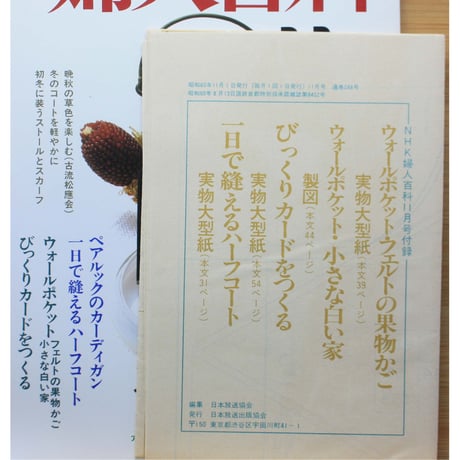 婦人百科
晩秋の草色を楽しむ(古流松應会)
冬のコートを軽やかに
初冬に装うストールとスカーフ
ペアルックのカーディガン
一日で縫えるハーフコート
ウォールポケット フェルトの果物かご
小さな白い家
びっくりカードをつくる
昭和60年11月1日発行(毎月1回1日発行)11月号
NHK婦人百科11月号付録
ウォールポケット・フェルトの果物かご
実物大型紙(本文39ページ)
ウォールポケット・小さな白い家
製図(本文44ページ)
びっくりカードをつくる
実物大型紙(本文54ページ)
一日で縫えるハーフコート
実物大型紙(本文31ページ)
編集 日本放送協会
発行 日本放送出版協会
〒150 東京都渋谷区宇田川町41-1